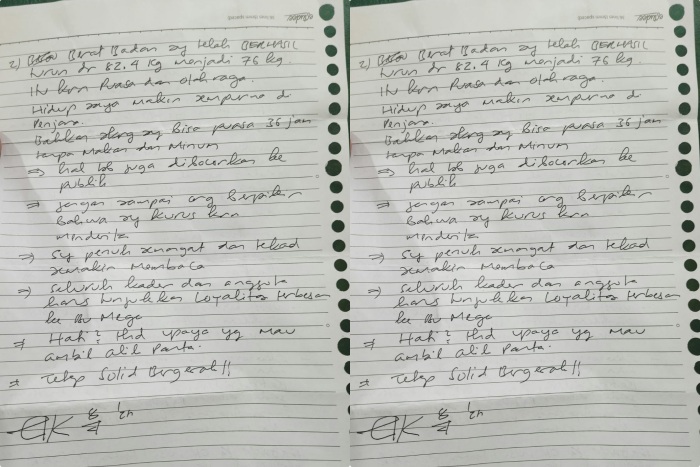 2) Berat Badan sy telah BERHASIL
turun dr 82.4 Kg menjadi 76 kg.
Itu krn Puasa dan olahraga.
Hidup saya makin sempurna di
Penjara.
Bahkan skrg sy Bisa puasa 36 jam
tanpa Makan dan Minum
⇒ hal tsb juga dibocorkan ke
publik
⇒ Jangan sampai org berpikir
Bahwa sy kurus krn
menderita
⇒ Sy penuh semangat dan tekad
semakin membaca
⇒ Seluruh kader dan anggota
harus tunjukkan Loyalitas terbesar
ke Bu Mega
⇒ Hati2 thd upaya yg mau
ambil alih Partai.
⇒ Tetap Solid Bergerak!!
8/4
2) Berat Badan sy telah BERHASIL
turun dr 82.4 Kg menjadi 76 kg.
Itu krn Puasa dan olahraga.
Hidup saya makin sempurna di
Penjara.
Bahkan skrg sy Bisa puasa 36 jam
tanpa Makan dan Minum
⇒ hal tsb juga dibocorkan ke
publik
⇒ Jangan sampai org berpikir
Bahwa sy kurus krn
menderita
⇒ Sy penuh semangat dan tekad
semakin membaca
⇒ Seluruh kader dan anggota
harus tunjukkan Loyalitas terbesar
ke Bu Mega
⇒ Hati2 thd upaya yg mau
ambil alih Partai.
⇒ Tetap Solid Bergerak!!
8/4